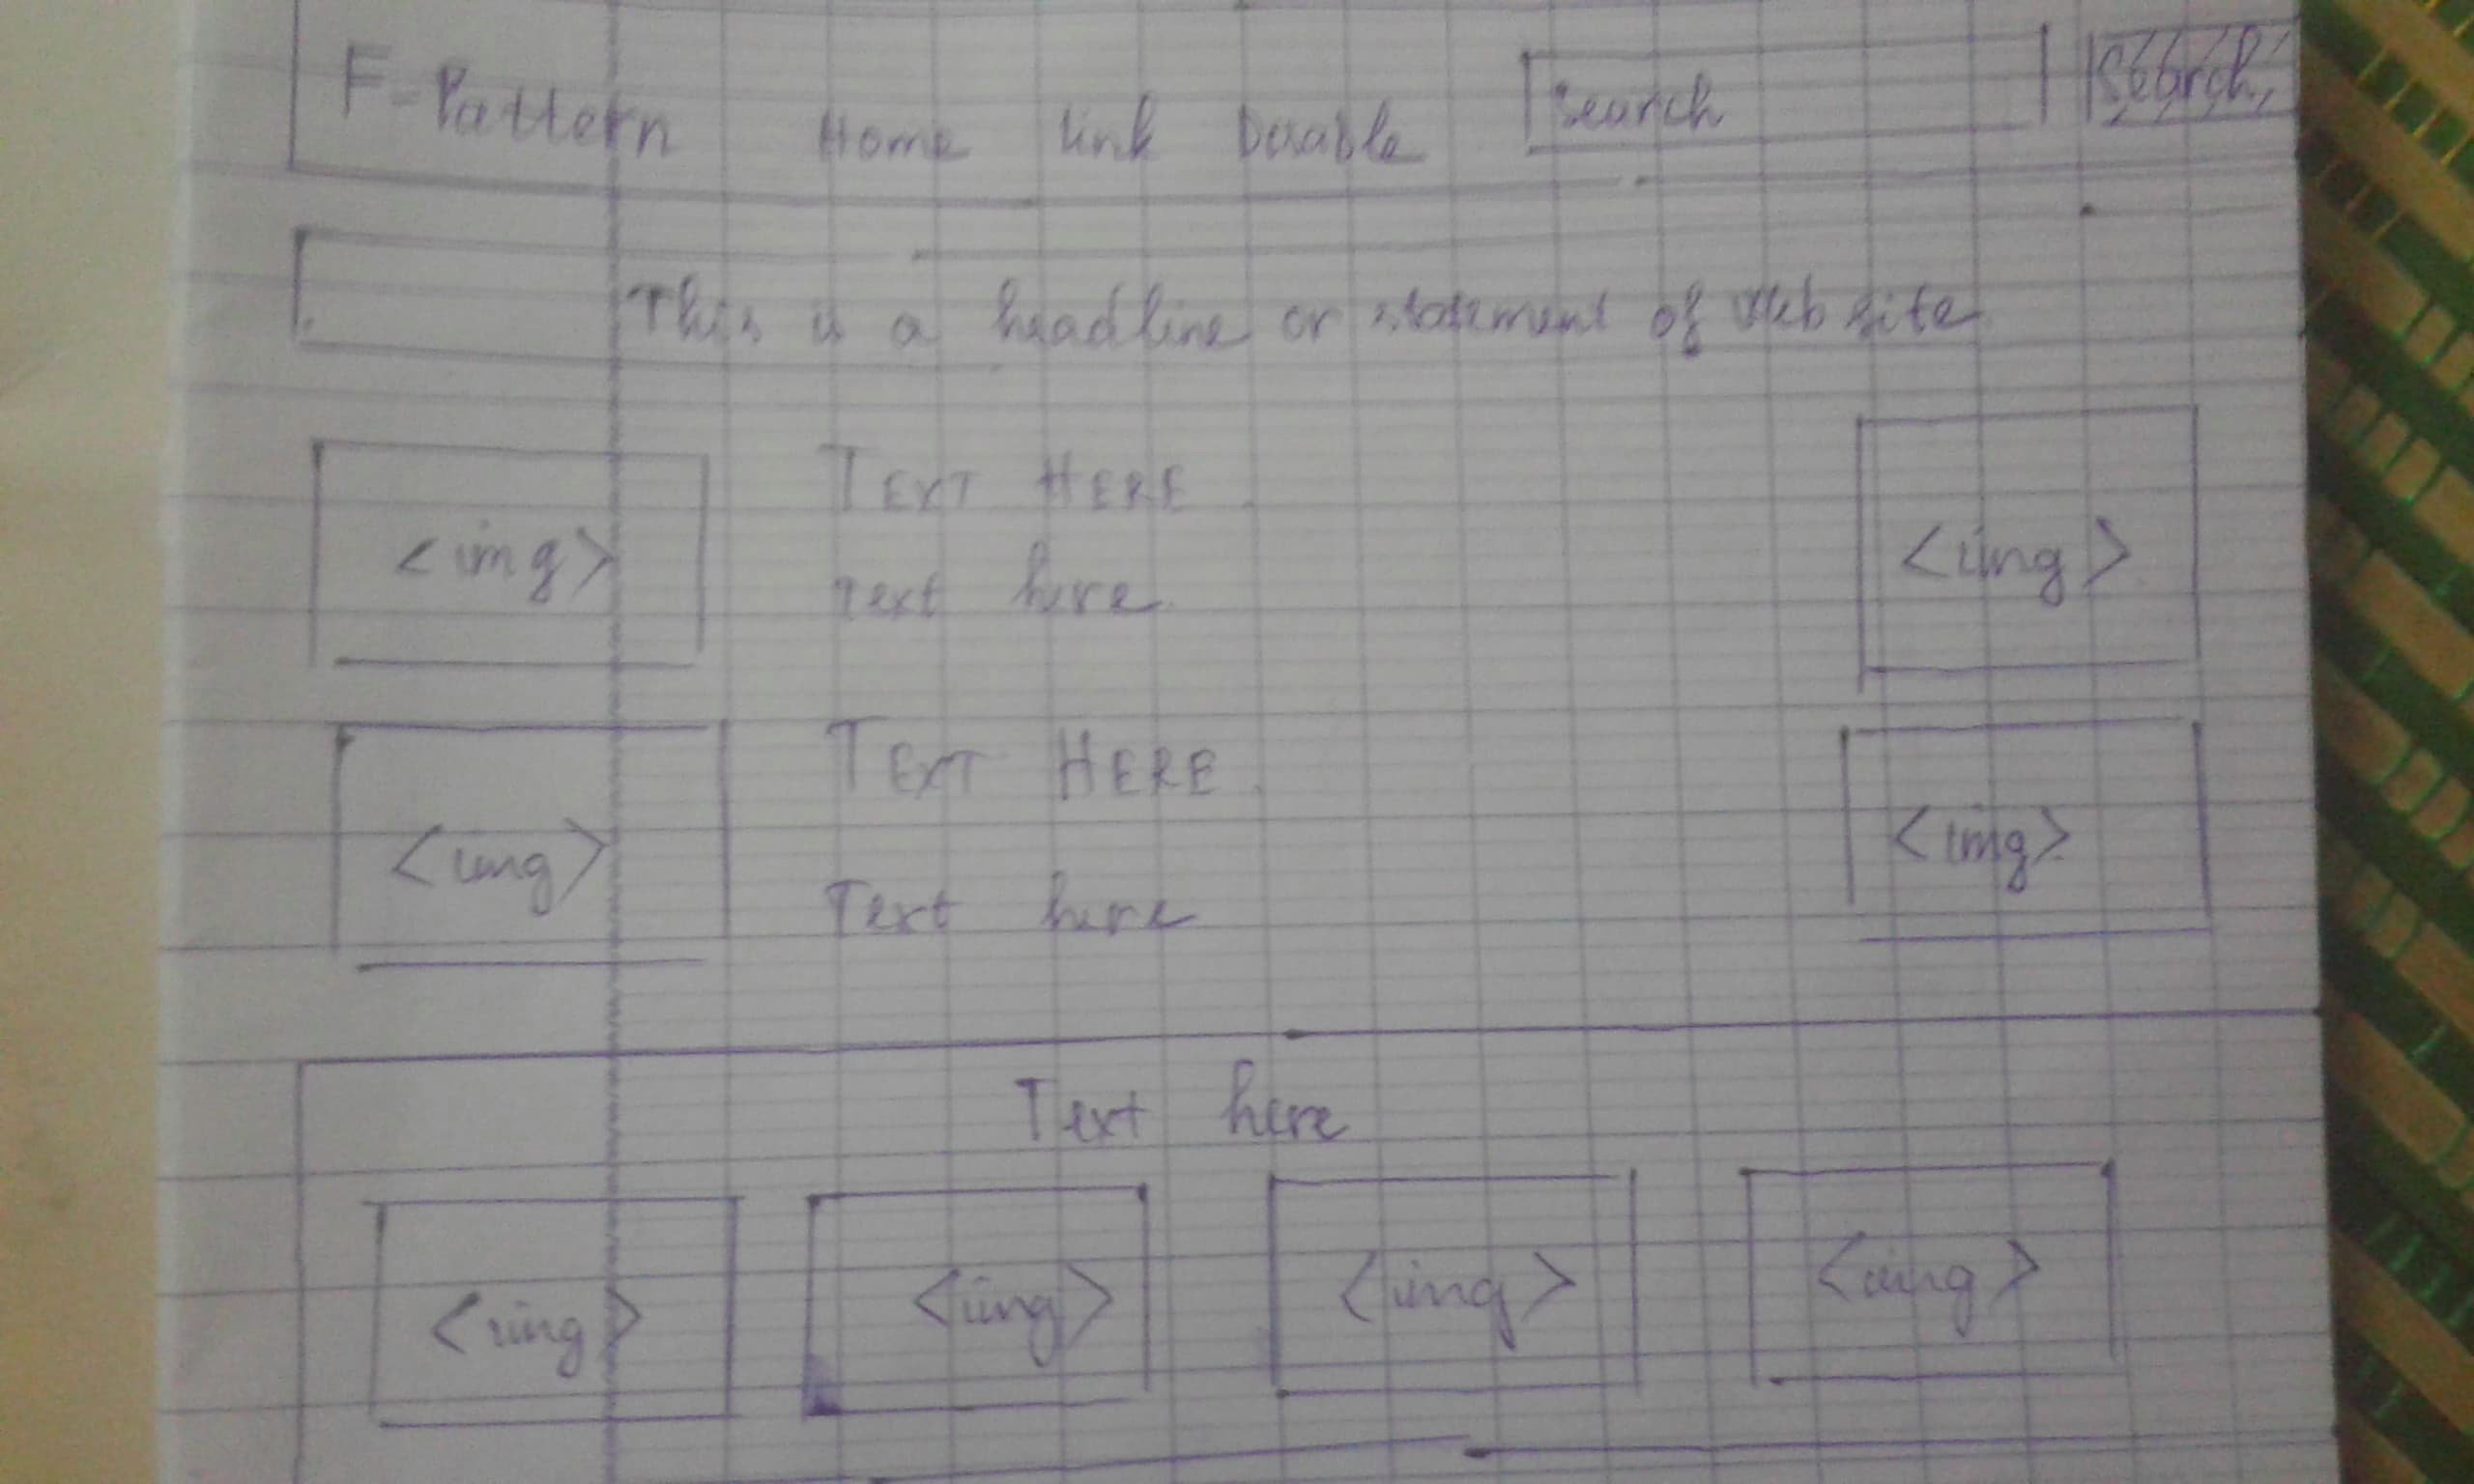 F-Pattern Home link Disable Search Search
This is a headline or statement of web site
<img> TEXT HERE <img>
Text here
<img> TEXT HERE <img>
Text here
Text here
<img> <img> <img> <img>